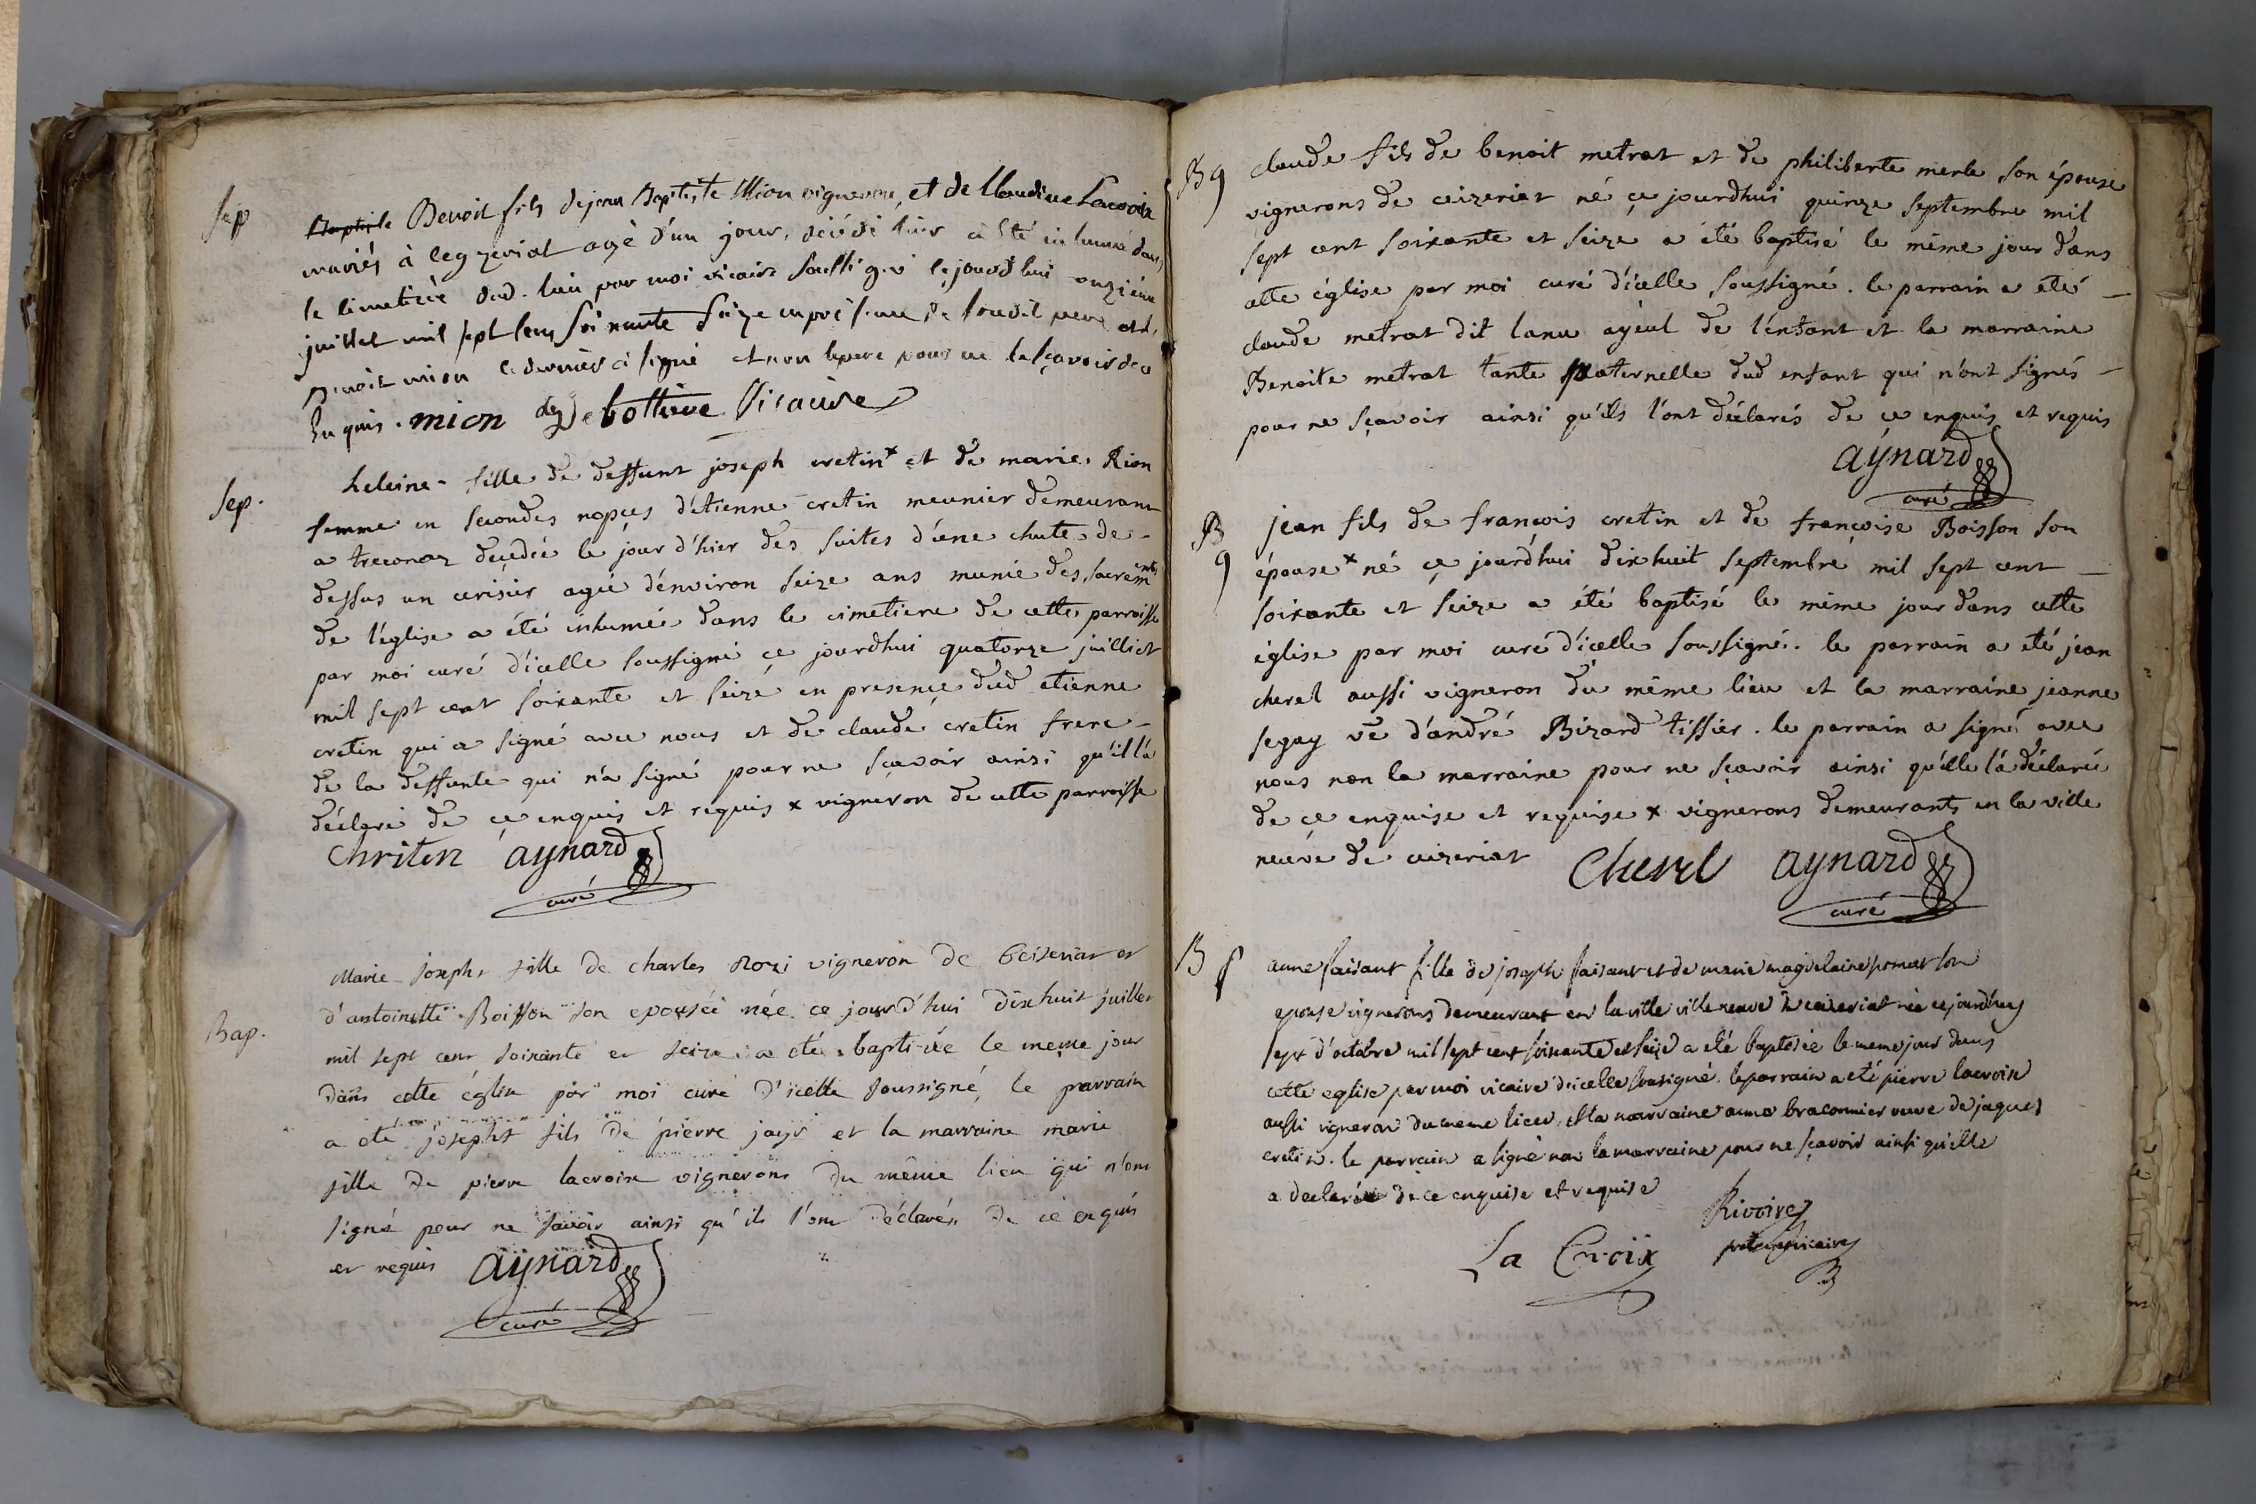 Sep
Baptiste Benoit fils de jean Baptiste Mion vigneron, et de Claudine Lacroix
mariés à Ceyzeriat agé d'un jour, décédé hier a été inhumé dans
le cimetiere dud. lieu par moi vicaire soussigné cejourd'hui onzieme
juillet mil sept cens soixante seize en présence de soudit pere et d.
Benoit mion ce dernier a signé et non le pere pour ne le sçavoir de ce
Enquis. mion Debottiere Vicaire
Sep.
heleine fille de deffunt joseph cretin x et de marie Rion
femme en secondes nopçes d'étienne cretin meunier demeurant
a treconaz decedée le jour d'hier des suites d'une chute de
dessus un cerisier agée d'environ seize ans munie des sacrements
de l'église a été inhumée dans le cimetiere de cette parroisse
par moi curé d'icelle soussigné ce jourdhui quatorze juillet
mil sept cent soixante et seize en presençe dud etienne
cretin qui a signé avec nous et de claude cretin frere
de la deffunte qui n'a signé pour ne sçavoir ainsi qu'il l'a
déclaré de ce enquis et requis x vigneron de cette parroisse
Chriten aynard
curé
Bap.
Marie joseph fille de charles Rozi vigneron de Ceiseriat et
d'antoinette Boisson son epousée née ce jourd'hui dixhuit juillet
mil sept cent soixante et seize a été baptisée le meme jour
dans cette église par moi curé d'icelle soussigné, le parrain
a été joseph fils de pierre jayr et la marraine marie
fille de pierre lacroix vignerons du même lieu qui n'ont
signé pour ne savoir ainsi qu'ils l'ont déclarés de ce enquis
et requis aynard
curé
B 9
claude fils de benoit metrat et de philiberte merle son épouse
vignerons de ceizeriat né ce jourdhui quinze septembre mil
sept cent soixante et seize a été baptisé le même jour dans
cette église par moi curé d'icelle soussigné. le parrain a été
claude metrat dit lanu ayeul de l'enfant et la marraine
Benoite metrat tante paternelle dud enfant qui n'ont signés
pour ne sçavoir ainsi qu'ils l'ont déclarés de ce enquis et requis
aynard
curé
B 9
jean fils de françois cretin et de françoise Boisson son
épouse x né ce jourdhui dixhuit septembre mil sept cent
soixante et seize a été baptisé le même jour dans cette
église par moi curé d'icelle soussigné. le parrain a été jean
cherel aussi vigneron du même lieu et la marraine jeanne
segay ve d'andré Bizard tissier. le parrain a signé avec
nous non la marraine pour ne sçavoir ainsi qu'elle l'a déclaré
de ce enquise et requise x vignerons demeurants en la ville
neuve de ceizeriat Cherel aynard
curé
B 8
anne faisant fille de joseph faisant et de marie magdelaine ponsat son
epouse vignerons demeurant en la ville ville neuve de ceizeriat née cejourd'huy
sept d'octobre mil sept cent soixante et seize a eté baptisée le meme jour dans
cette eglise par moi vicaire d'icelle soussigné. le parrain a eté pierre lacroix
aussi vigneron du meme lieu, et la marraine anne braconnier veuve de jaques
cretin. le parrain a signé non la marraine pour ne sçavoir ainsi qu'elle
a declaré de ce enquise et requise
Rivoire
La Croix pretre vicaire